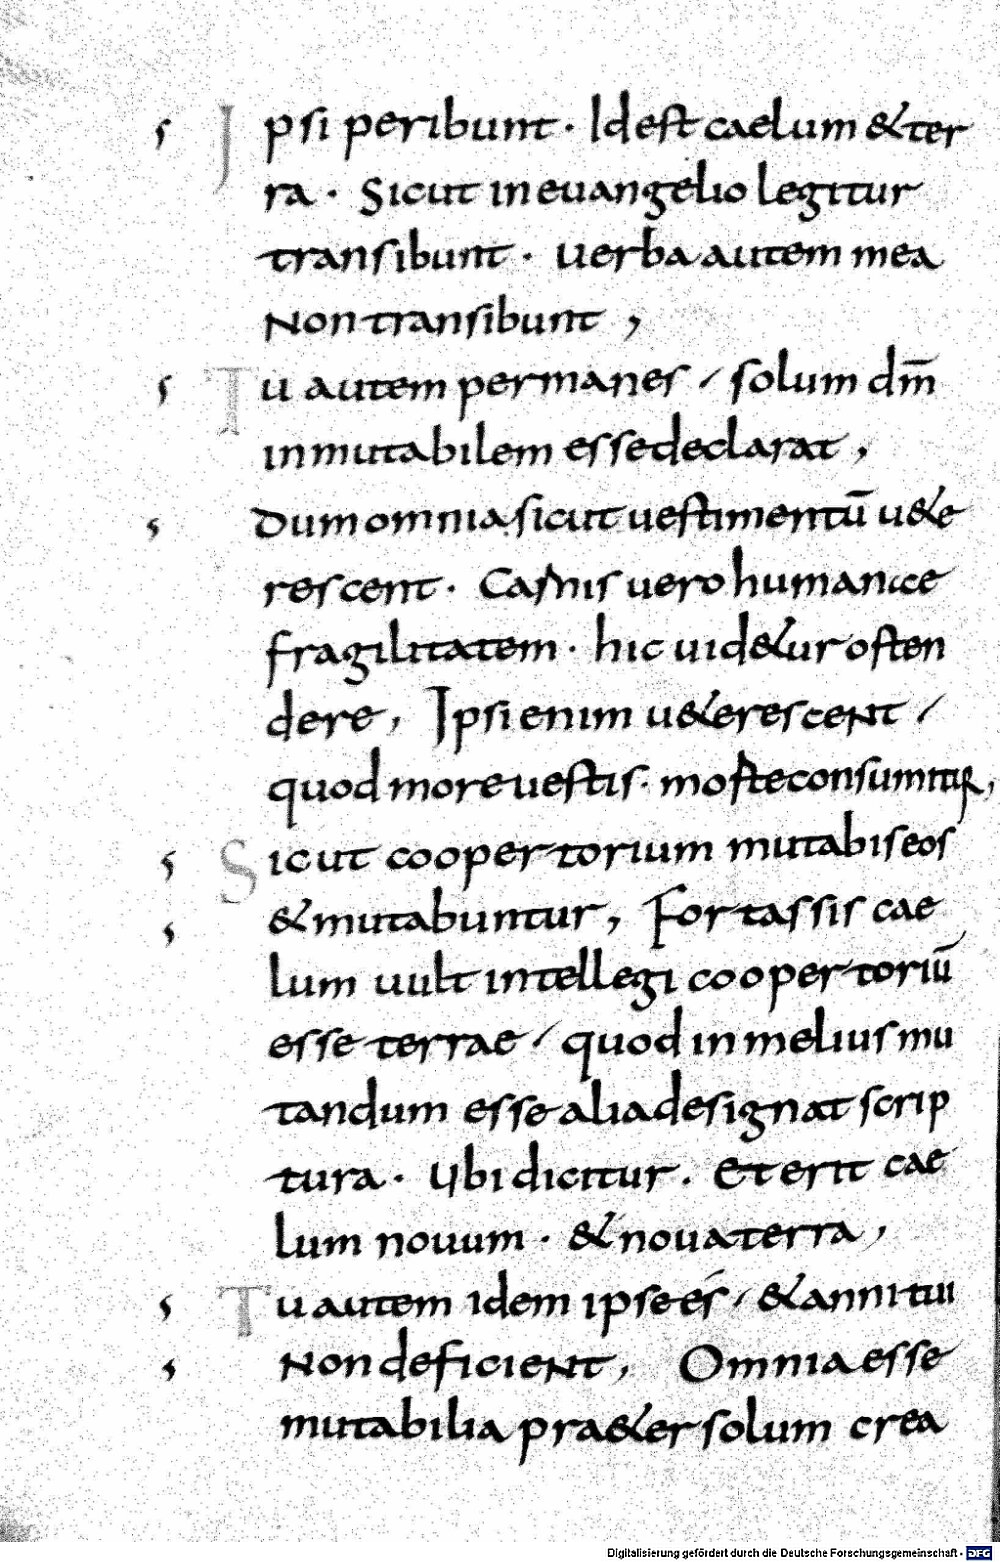 Ipsi peribunt · Id est caelum & ter
ra · Sicut in euangelio legitur
transibunt · uerba autem mea
Non transibunt ,
Tu autem permanes / solum dm̄
inmutabilem esse declarat ,
Dum omnia sicut uestimentū u&e
rescent · Carnis uero humanae
fragilitatem · hic uid&ur osten
dere , Ipsi enim u&erescent /
quod more uestis · a consumitur ,
Sicut coopertorium mutabis eos
& mutabuntur , Fortassis cae
lum uult intellegi coopertoriū
esse terrae / quod in melius mu
tandum esse alia designat scrip
tura · Ubi dicitur . Et erit cae
lum nouum · & noua terra ,
Tu autem idem ipse és / & anni tui
Non deficient , Omnia esse
mutabilia pra&er solum crea
Digitalisierung gefördert durch die Deutsche Forschungsgemeinschaft - DFG